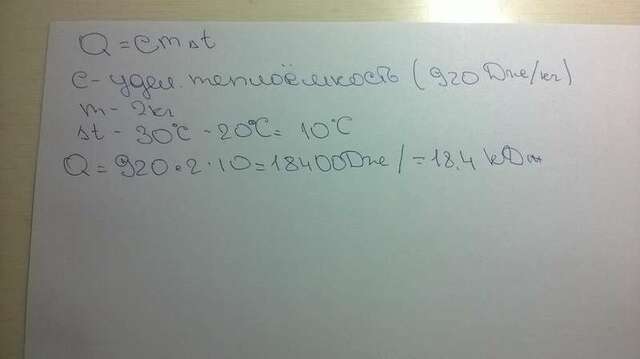 Q = cmΔt
c - удел. теплоёмкость (920 Дж/кг)
m - 2кг
Δt - 30°C - 20°C = 10°C
Q = 920 · 2 · 10 = 18400 Дж/ = 18,4 кДж